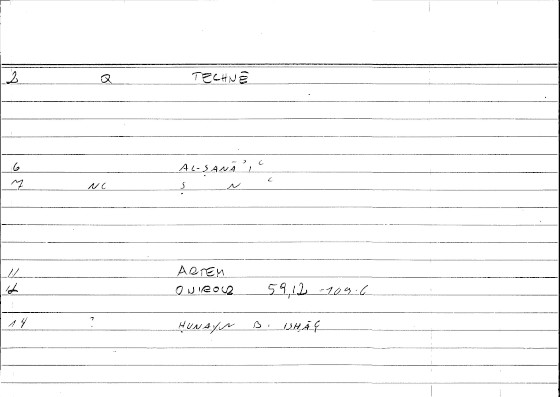 2 Q TECHNĒ
6 AL-ṢANĀʾIʿ
7 NC Ṣ N ʿ
11 ARTEM
12 59,12 -109.6
14 ? ḤUNAYN B. ISḤĀQ